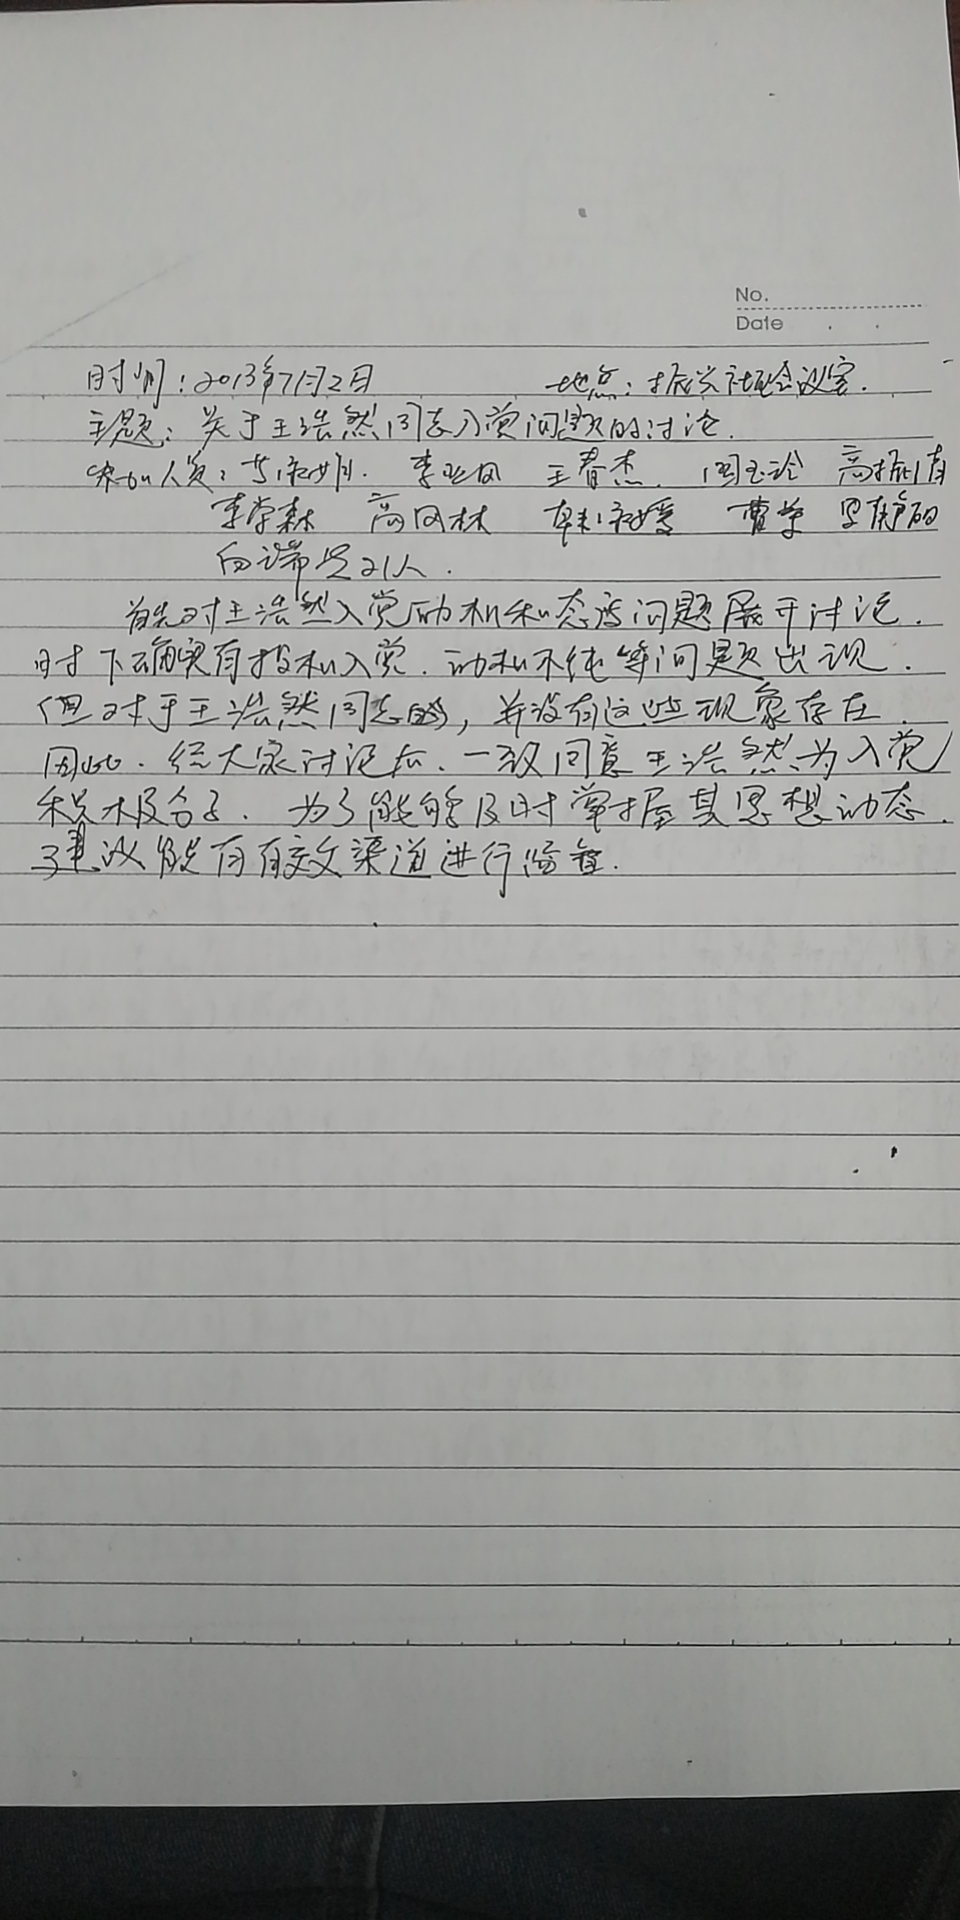 No.
Date
时间：2013年7月2日 地点：振兴社区会议室.
主题：关于王浩然同志入党问题的讨论.
参加人员：李亚凤 王春杰. 周玉玲 高振清
李学森 高凤林 韩淑媛 曹学
白瑞兰21人.
首先对王浩然入党动机和态度问题展开讨论.
时下确实有投机入党.动机不纯等问题出现.
但对于王浩然同志的,并没有这些现象存在.
因此.经大家讨论后.一致同意王浩然为入党
积极分子.为了能够及时掌握其思想动态.
建议能有有效渠道进行监督.